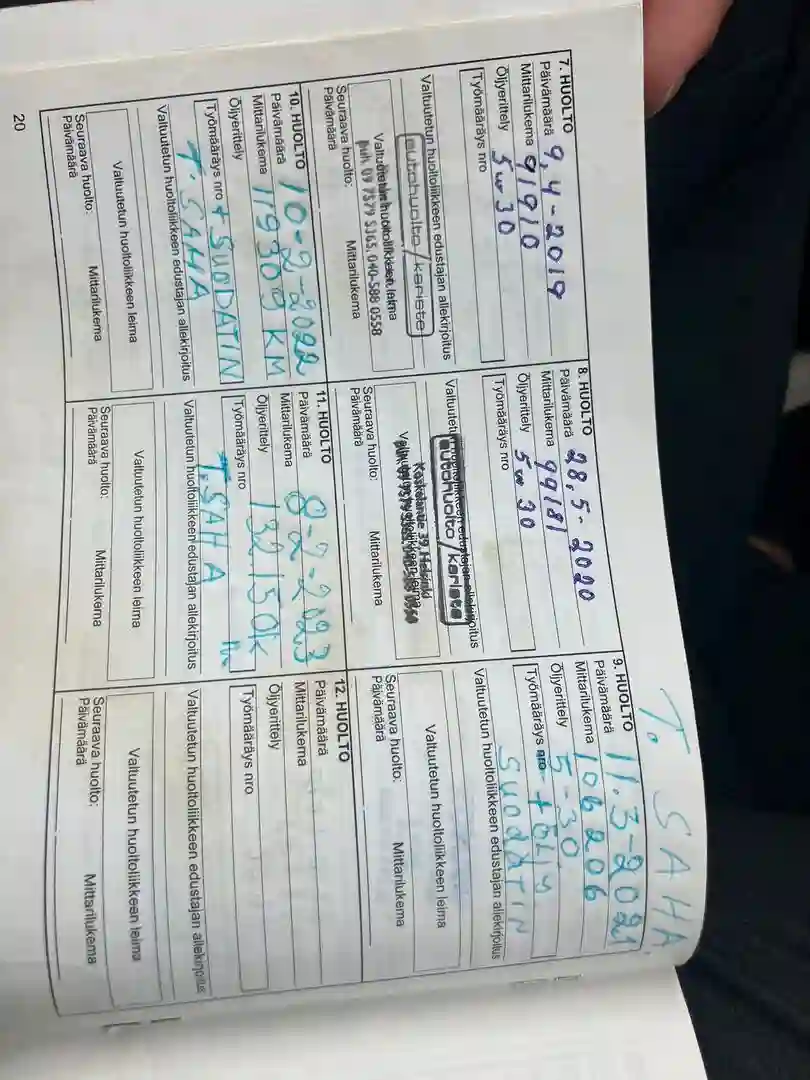 T. SAHA
7. HUOLTO
Päivämäärä 9,4-2019
Mittarilukema 91910
Öljyerittely 5w30
Työmääräys nro
Valtuutetun huoltoliikkeen edustajan allekirjoitus
autohuolto/kariste
Valtuutetun huoltoliikkeen leima
puh. 09 7579 5365, 040-588 0558
Seuraava huolto:
Päivämäärä Mittarilukema
8. HUOLTO
Päivämäärä 28,5-2020
Mittarilukema 99181
Öljyerittely 5w30
Työmääräys nro
Valtuutetun huoltoliikkeen edustajan allekirjoitus
autohuolto/kariste
Koskelantie 39, Helsinki
Seuraava huolto:
Päivämäärä Mittarilukema
9. HUOLTO
Päivämäärä 11.3-2021
Mittarilukema 106206
Öljyerittely 5-30
Työmääräys nro + ÖLJY
SUODATIN
Valtuutetun huoltoliikkeen edustajan allekirjoitus
Valtuutetun huoltoliikkeen leima
Seuraava huolto:
Päivämäärä Mittarilukema
10. HUOLTO
Päivämäärä 10-2-2022
Mittarilukema 119300 KM
Öljyerittely
Työmääräys nro + SUODATIN
T. SAHA
Valtuutetun huoltoliikkeen edustajan allekirjoitus
Valtuutetun huoltoliikkeen leima
Seuraava huolto:
Päivämäärä Mittarilukema
11. HUOLTO
Päivämäärä 8-2-2023
Mittarilukema
Öljyerittely 132.150k
Työmääräys nro
T. SAHA
Valtuutetun huoltoliikkeen edustajan allekirjoitus
Valtuutetun huoltoliikkeen leima
Seuraava huolto:
Päivämäärä Mittarilukema
12. HUOLTO
Päivämäärä
Mittarilukema
Öljyerittely
Työmääräys nro
Valtuutetun huoltoliikkeen edustajan allekirjoitus
Valtuutetun huoltoliikkeen leima
Seuraava huolto:
Päivämäärä Mittarilukema
20